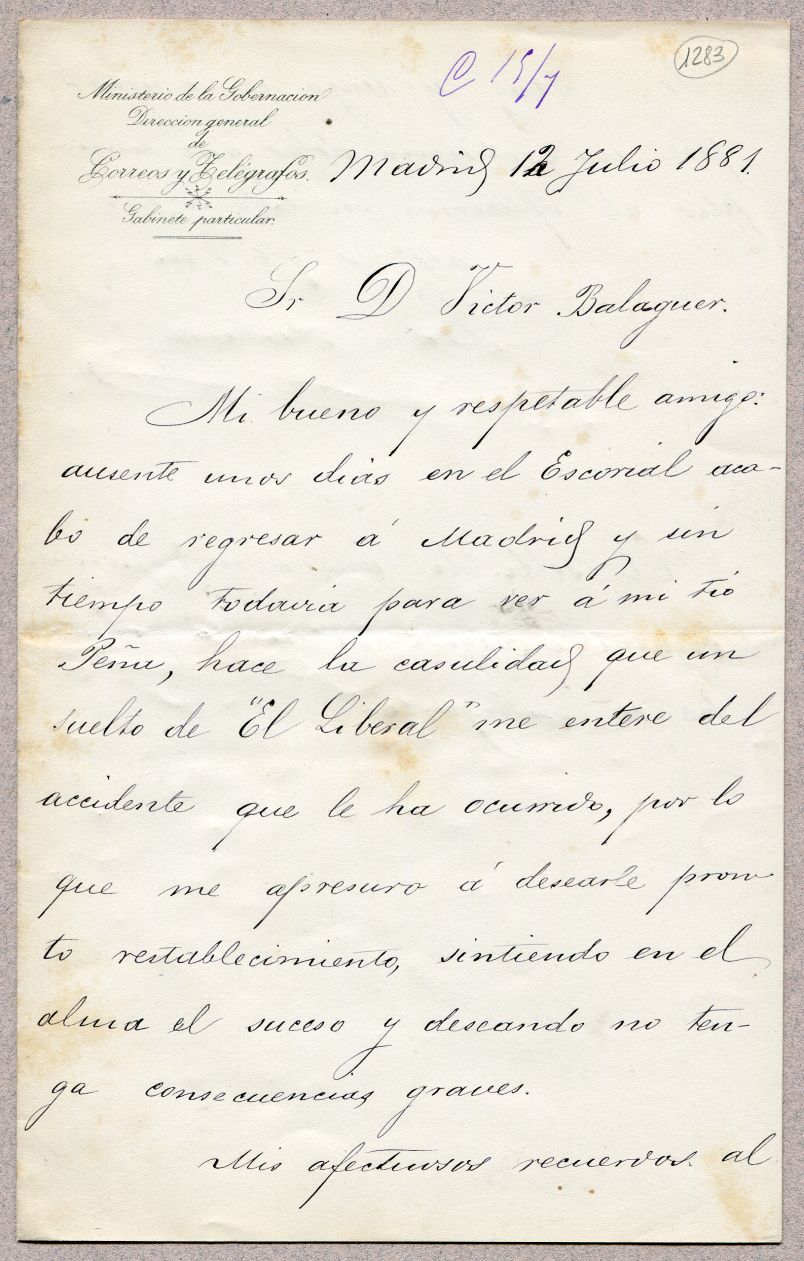 C 15/7
1283
Ministerio de la Gobernacion
Direccion general
de
Correos y Telégrafos.
Gabinete particular.
Madrid 12 Julio 1881.
Sr D Victor Balaguer.
Mi bueno y respetable amigo:
ausente unos dias en el Escorial aca-
bo de regresar á Madrid y sin
tiempo todavia para ver á mi tio
Peña, hace la casulidad que un
suelto de "El Liberal" me entere del
accidente que le ha ocurrido, por lo
que me apresuro á desearle pron
to restablecimiento, sintiendo en el
alma el suceso y deseando no ten-
ga consecuencias graves.
Mis afectuosos recuerdos al